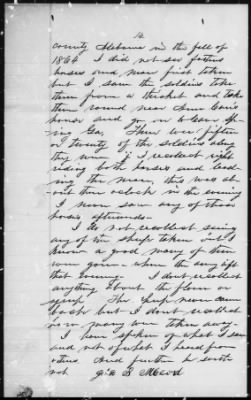 county Alabama in the fall of
1864 I did not see
horses and mare first taken
but I saw the soldiers take
them from a thicket and take
them round near
house and go on to
Ga. There were fifteen
or twenty of the soldiers along
they were if I recollect right
riding both horses and lead
ing the mare, this was ab
out two oclock in the evening
I never saw any of these
horses afterwards
I do not recollect seeing
any of the sheep taken but I
know a good many of them
were gone when the army left
that evening I dont recollect
anything about the flour or
syrup The sheep never came
back but I dont recollect
how many were taken away
I have spoken of what I saw
and not of what I heard from
others And further he saith
not